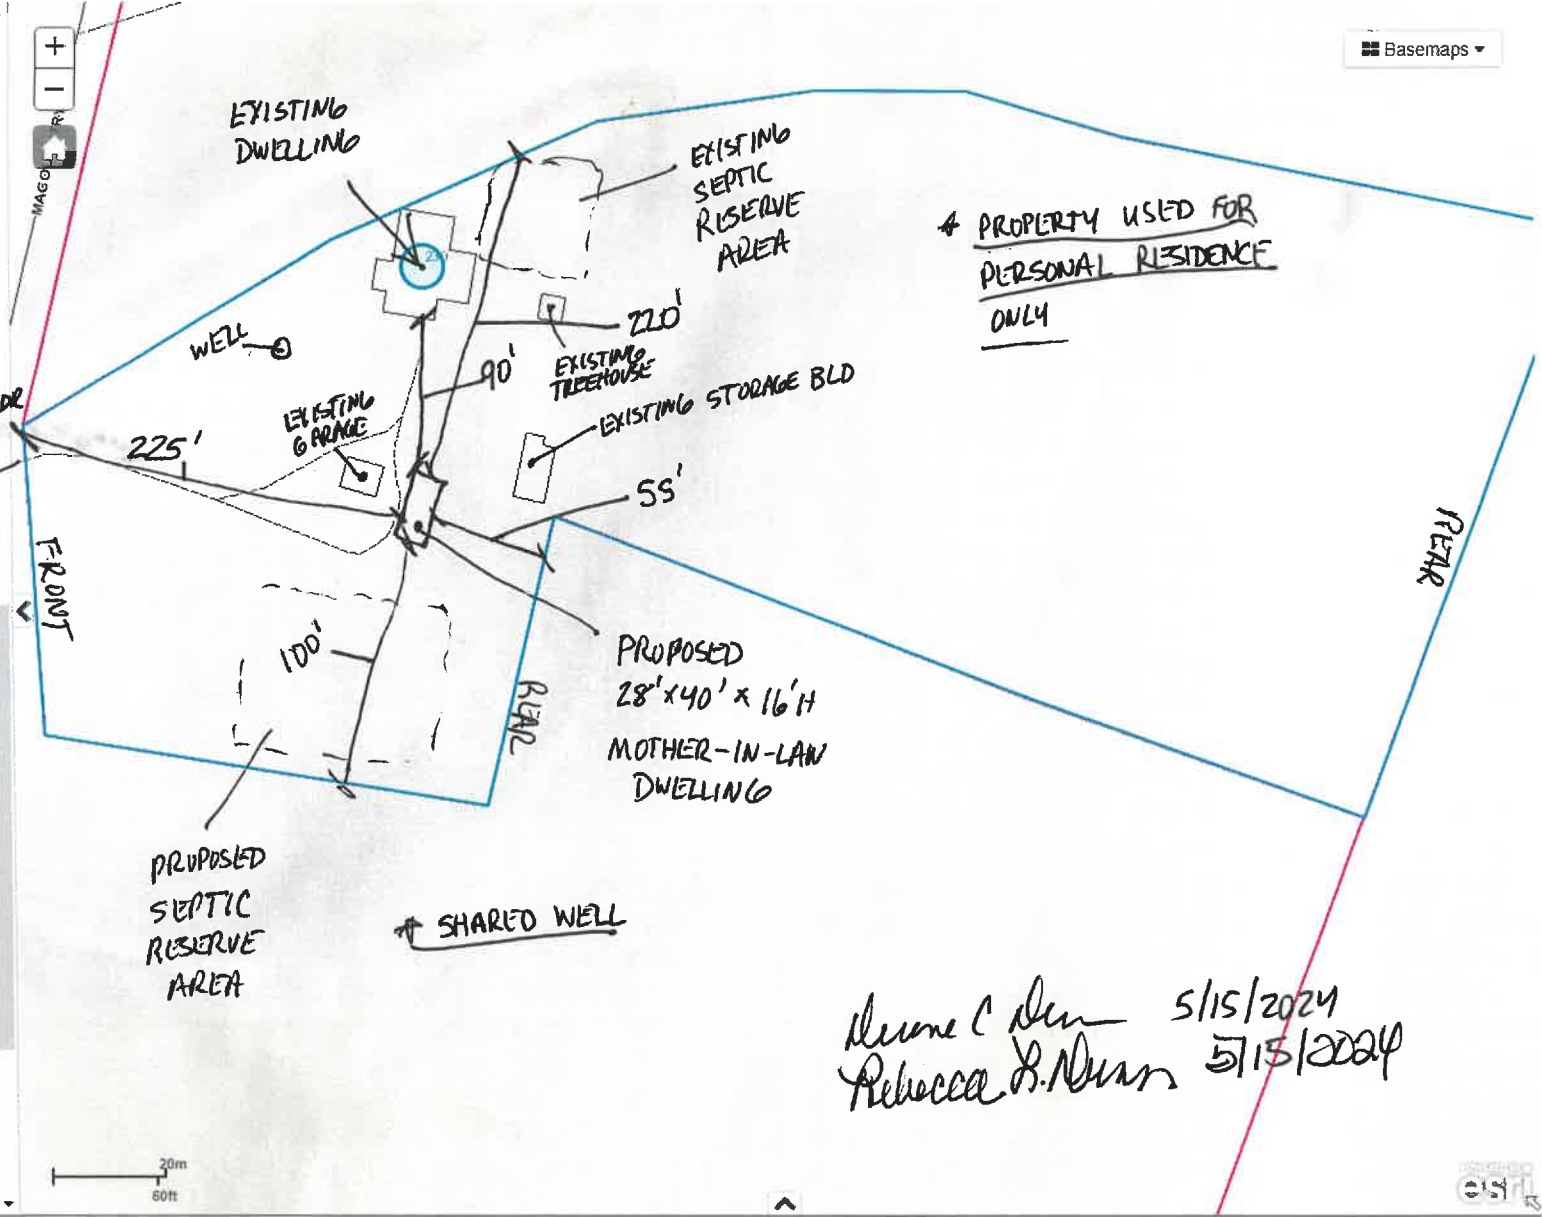 +
−
MAGO
Basemaps
EXISTING
DWELLING
EXISTING
SEPTIC
RESERVE
AREA
* PROPERTY USED FOR
PERSONAL RESIDENCE
ONLY
WELL
220'
90'
EXISTING
TREEHOUSE
EXISTING STORAGE BLD
DR
EXISTING
GARAGE
225'
55'
FRONT
REAR
100'
REAR
PROPOSED
28'x40' x 16'H
MOTHER-IN-LAW
DWELLING
PROPOSED
SEPTIC
RESERVE
AREA
* SHARED WELL
5/15/2024
Rebecca L. 5/15/2024
20m
60ft
esri